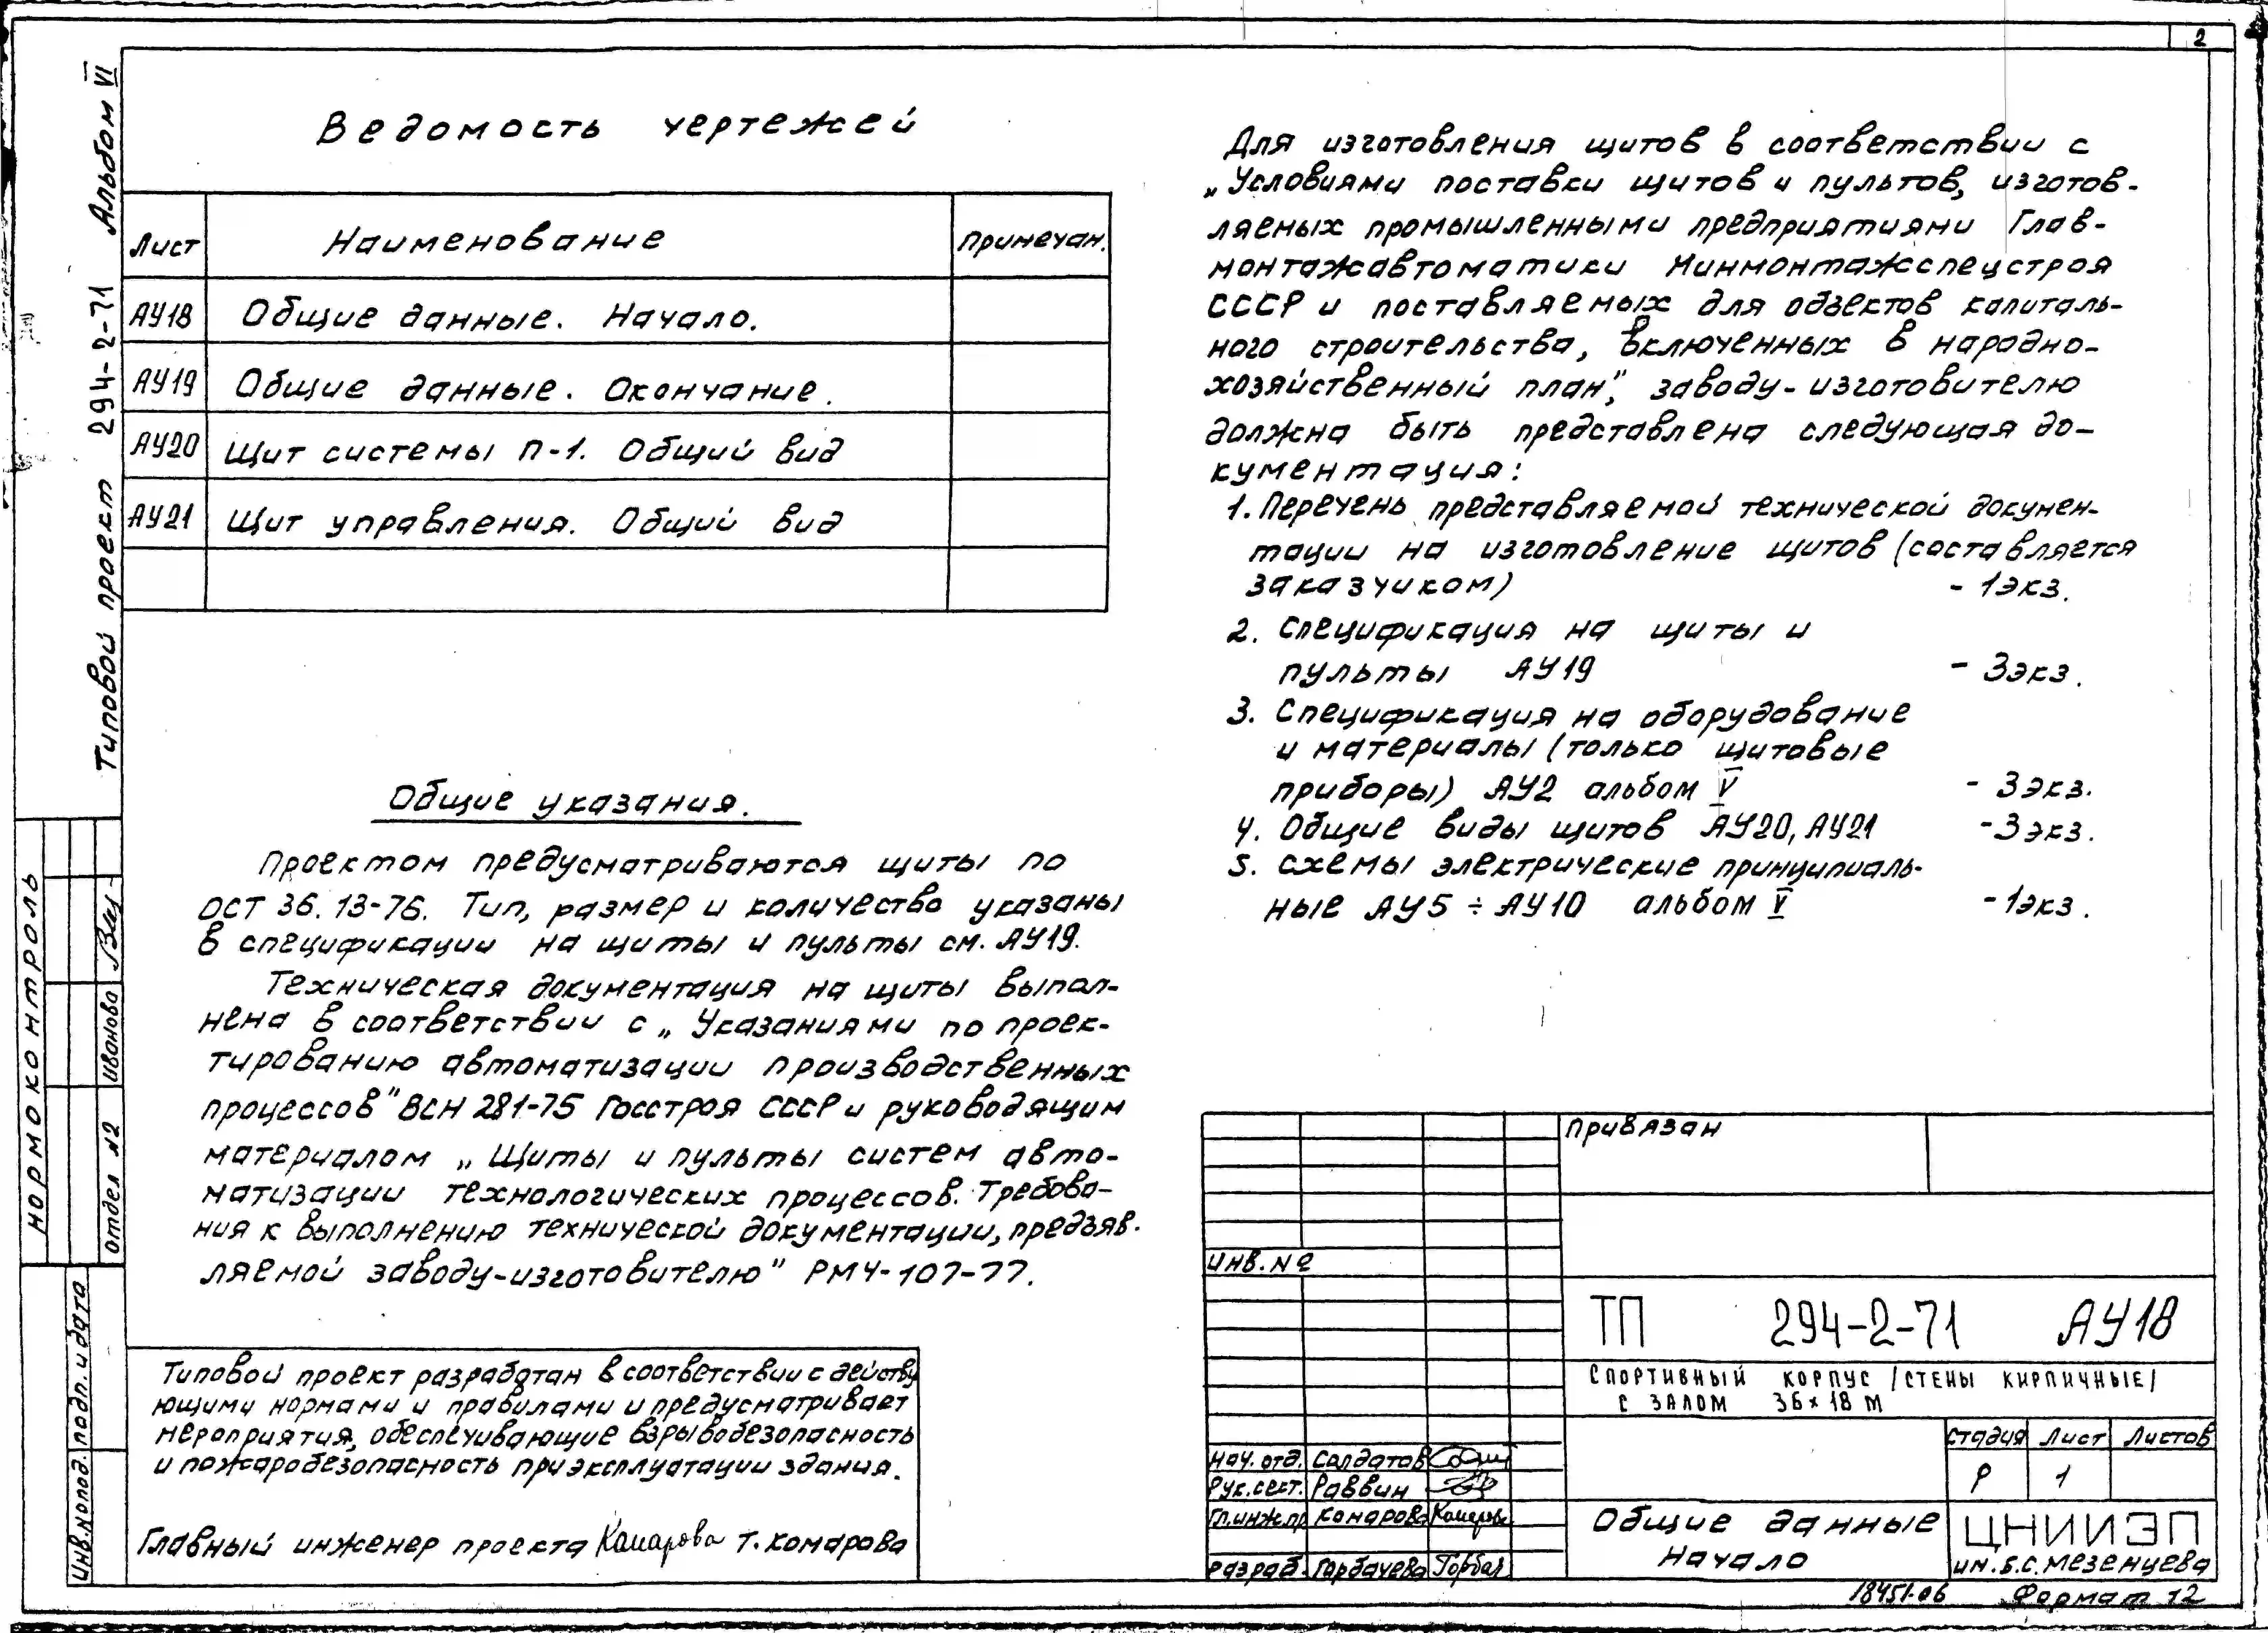 2
Типовой проект 294-2-71 Альбом VI
Ведомость чертежей
Лист Наименование Примечан.
АУ18 Общие данные. Начало.
АУ19 Общие данные. Окончание.
АУ20 Щит системы П-1. Общий вид
АУ21 Щит управления. Общий вид
Общие указания.
Проектом предусматриваются щиты по
ОСТ 36.13-76. Тип, размер и количество указаны
в спецификации на щиты и пульты см. АУ19.
Техническая документация на щиты выпол-
нена в соответствии с „Указаниями по проек-
тированию автоматизации производственных
процессов" ВСН 281-75 Госстроя СССР и руководящим
материалом „Щиты и пульты систем авто-
матизации технологических процессов. Требова-
ния к выполнению технической документации, предъяв-
ляемой заводу-изготовителю" РМ4-107-77.
Типовой проект разработан в соответствии с действу
ющими нормами и правилами и предусматривает
мероприятия, обеспечивающие взрывобезопасность
и пожаробезопасность при эксплуатации здания.
Главный инженер проекта Комарова Т. Комарова
Для изготовления щитов в соответствии с
„Условиями поставки щитов и пультов, изготов-
ляемых промышленными предприятиями Глав-
монтажавтоматики Минмонтажспецстроя
СССР и поставляемых для объектов капиталь-
ного строительства, включенных в народно-
хозяйственный план", заводу-изготовителю
должна быть представлена следующая до-
кументация:
1. Перечень представляемой технической докумен-
тации на изготовление щитов (составляется
заказчиком) - 1экз.
2. Спецификация на щиты и
пульты АУ19 - 3экз.
3. Спецификация на оборудование
и материалы (только щитовые
приборы) АУ2 альбом V - 3экз.
4. Общие виды щитов АУ20, АУ21 - 3экз.
5. Схемы электрические принципиаль-
ные АУ5 ÷ АУ10 альбом V - 1экз.
Нормоконтроль
отдел №2 Иванова
Инв.№подл. подп. и дата
Привязан
Инв. №
ТП 294-2-71 АУ18
Спортивный корпус /стены кирпичные/
с залом 36х18 м
Стадия Лист Листов
Р 1
Нач. отд. Солдатов
Рук. сект. Раввин
Гл.инж.пр Комарова Комарова
Разраб. Горбачева Горбач
Общие данные
Начало
ЦНИИЭП
им. Б.С. Мезенцева
18451-06 Формат 12